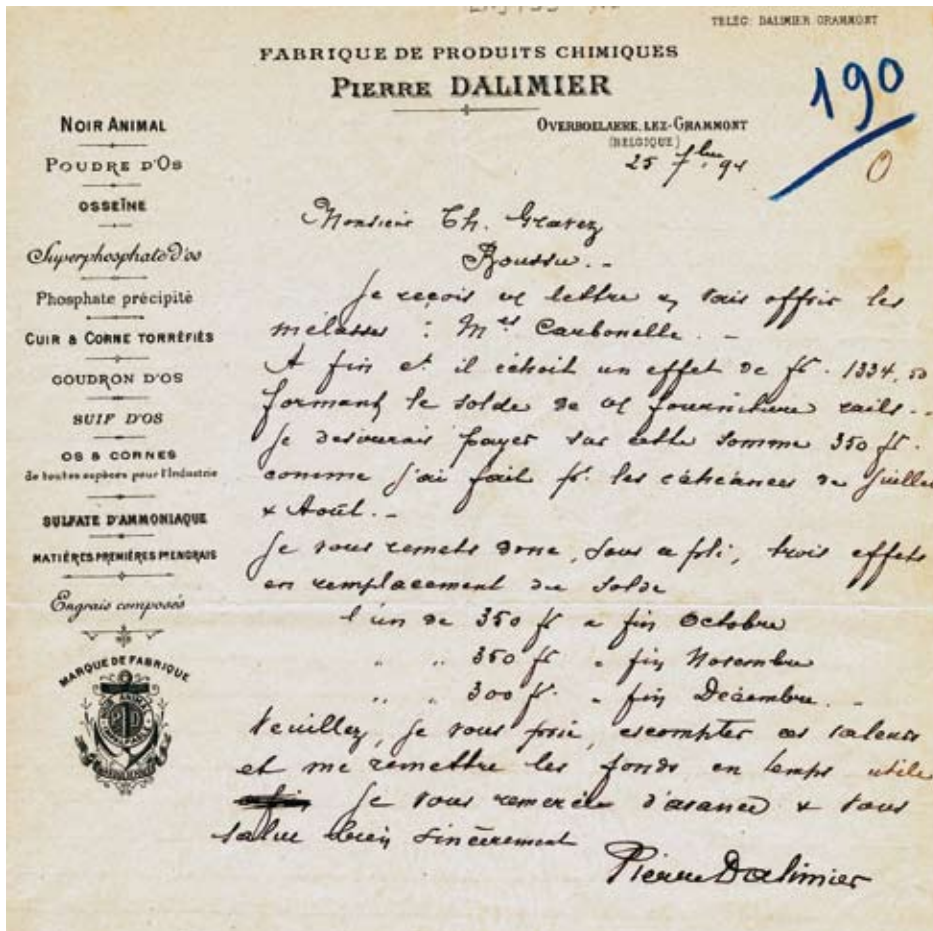 TELÉG: DALIMIER GRAMMONT
FABRIQUE DE PRODUITS CHIMIQUES
PIERRE DALIMIER
190
0
OVERBOELAERE, LEZ-GRAMMONT
(BELGIQUE)
25 7bre 94
NOIR ANIMAL
POUDRE D'OS
OSSEÏNE
Superphosphate d'os
Phosphate précipité
CUIR & CORNE TORRÉFIÉS
GOUDRON D'OS
SUIF D'OS
OS & CORNES
de toutes espèces pour l'Industrie
SULFATE D'AMMONIAQUE
MATIÈRES PREMIÈRES Pr ENGRAIS
Engrais composés
MARQUE DE FABRIQUE
Monsieur Th. Gravez
Boussu. -
Je reçois lettre & vais offrir les
mélasses : Mes Carbonelle. -
A fin ct il échoit un effet de fs. 1334,50
formant le solde de fourniture rails. -
Je désirerais payer sur cette somme 350 fs.
comme j'ai fait pr. les échéances de Juillet
& Août. -
Je vous remets donc, sous ce pli, trois effets
en remplacement du solde
l'un de 350 fs a fin Octobre
" " 350 fs " fin Novembre
" " 300 fs. " fin Décembre. -
Veuillez, je vous prie, escompter ces valeurs
et me remettre les fonds en temps utile
Je vous remercie d'avance & vous
salue bien sincèrement
Pierre Dalimier